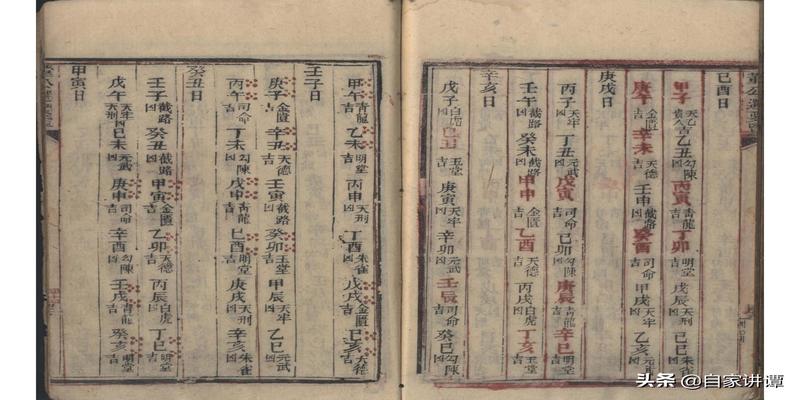 己酉日
甲子天乙貴人吉乙丑勾陳凶丙寅青龍吉丁卯明堂吉戊辰天刑凶己巳朱雀凶
庚午金匱吉辛未天德吉壬申截路凶癸酉司命吉甲戌天牢凶乙亥元武凶
庚戌日
丙子天牢凶丁丑元武凶戊寅司命吉己卯勾陳凶庚辰青龍吉辛巳明堂吉
壬午截路凶癸未截路凶甲申金匱吉乙酉天德吉丙戌白虎凶丁亥玉堂吉
辛亥日
戊子白虎凶己丑玉堂吉庚寅天牢凶辛卯元武凶壬辰司命吉癸巳勾陳凶
甲午青龍吉乙未明堂吉丙申天刑凶丁酉朱雀凶戊戌金匱吉己亥天德吉
壬子日
庚子金匱吉辛丑天德吉壬寅截路凶癸卯玉堂吉甲辰天牢凶乙巳元武凶
丙午司命吉丁未勾陳凶戊申青龍吉己酉明堂吉庚戌天刑凶辛亥朱雀凶
癸丑日
壬子截路凶癸丑截路凶甲寅金匱吉乙卯天德吉丙辰白虎凶丁巳玉堂吉
戊午天牢凶己未元武凶庚申司命吉辛酉勾陳凶壬戌青龍吉癸亥明堂吉
甲寅日
头条 @自家讲谭